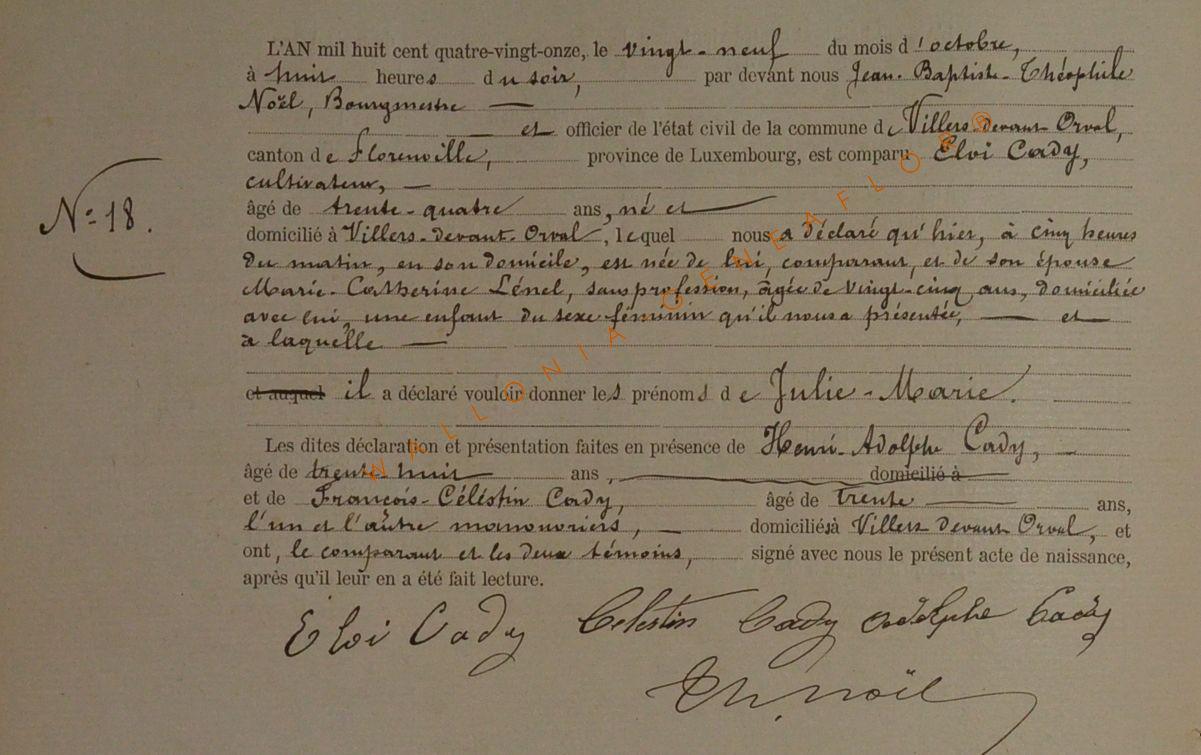 L'AN mil huit cent quatre-vingt-onze, le vingt-neuf du mois d'octobre,
à huit heures du soir, par devant nous Jean-Baptiste-Théophile
Noël, Bourgmestre —
— et officier de l'état civil de la commune de Villers-devant-Orval,
canton de Florenville, province de Luxembourg, est comparu Eloi Cady,
cultivateur, —
N° 18.
âgé de trente-quatre ans, né et
domicilié à Villers-devant-Orval, lequel nous a déclaré qu'hier, à cinq heures
du matin, en son domicile, est née de lui, comparant, et de son épouse
Marie-Catherine Lénel, sans profession, âgée de vingt-cinq ans, domiciliée
avec lui, une enfant du sexe féminin qu'il nous a présentée, — et
a laquelle —
et auquel il a déclaré vouloir donner les prénoms de Julie-Marie.
Les dites déclaration et présentation faites en présence de Henri-Adolphe Cady, —
âgé de trente-huit ans, — domicilié à
et de François-Céléstin Cady, âgé de trente — ans,
l'un et l'autre manouvriers, — domiciliés à Villers devant Orval, et
ont, le comparant et les deux témoins, signé avec nous le présent acte de naissance,
après qu'il leur en a été fait lecture.
Eloi Cady Celestin Cady Adolphe Cady
Th. Noël
WALLONIA-GENEAFLORE